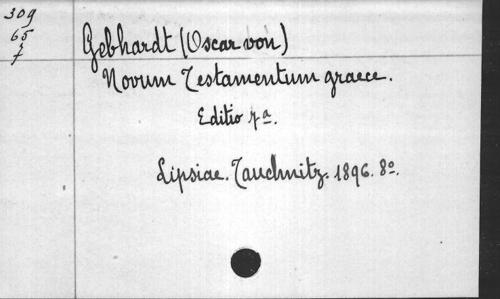 309
65
7
Gebhardt (Oscar von)
Novum Testamentum graece.
Editio 7a.
Lipsiae. Tauchnitz. 1896. 8o.